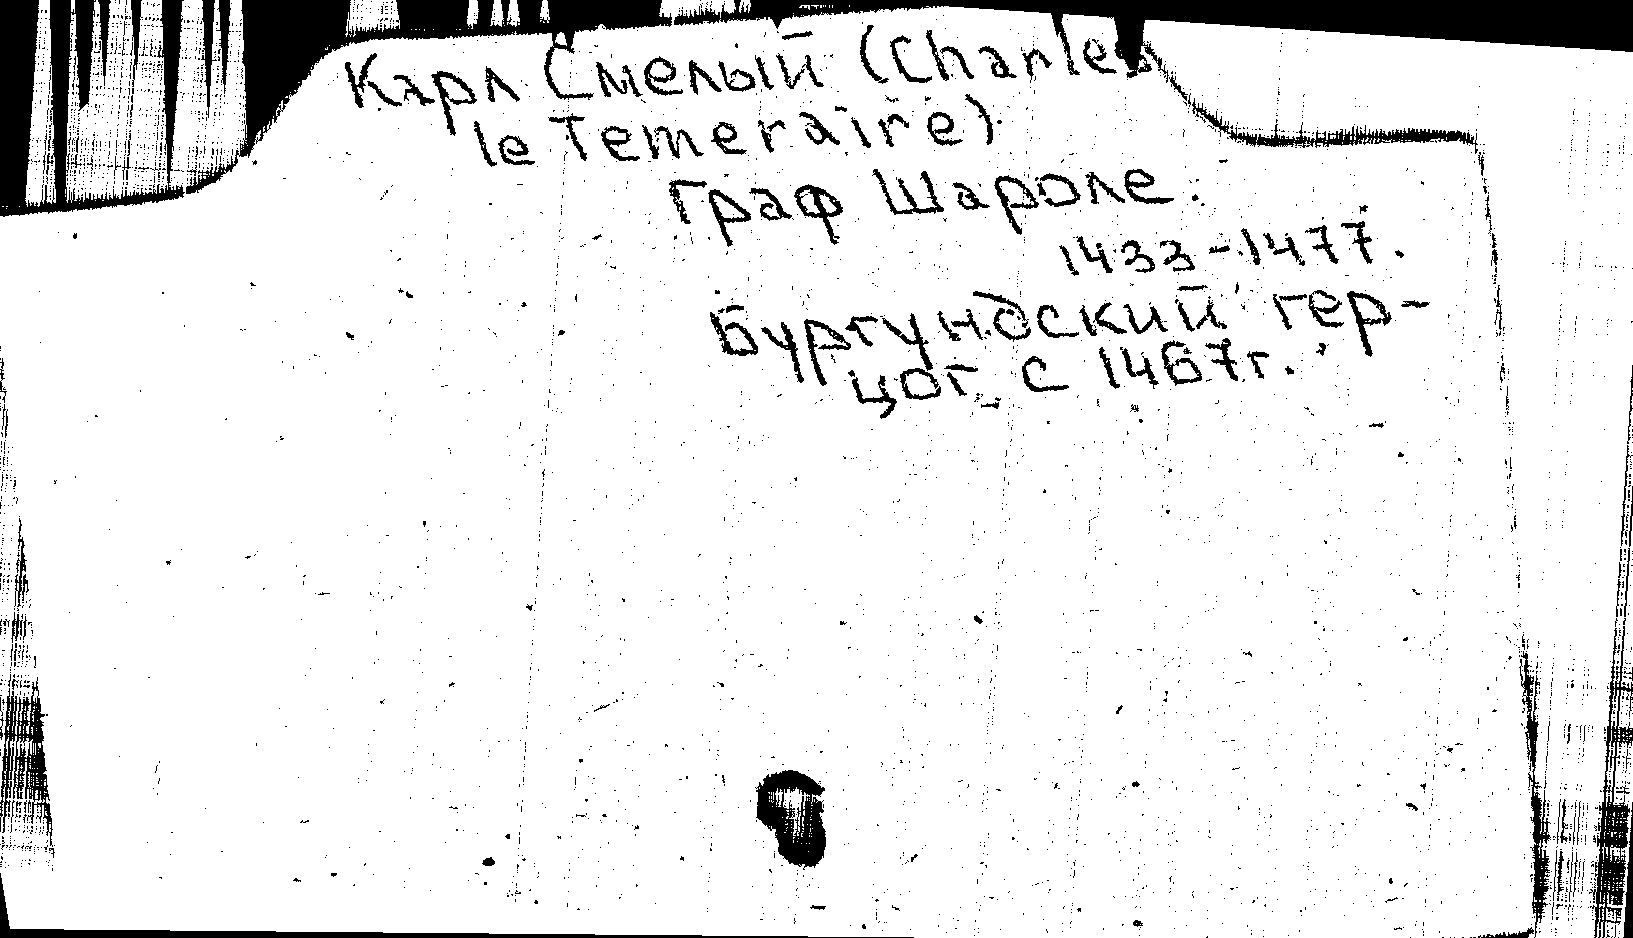 Карл Смелый (Charles
le Temeraire)
граф Шароле.
1433-1477.
Бургундский гер-
цог с 1467г.